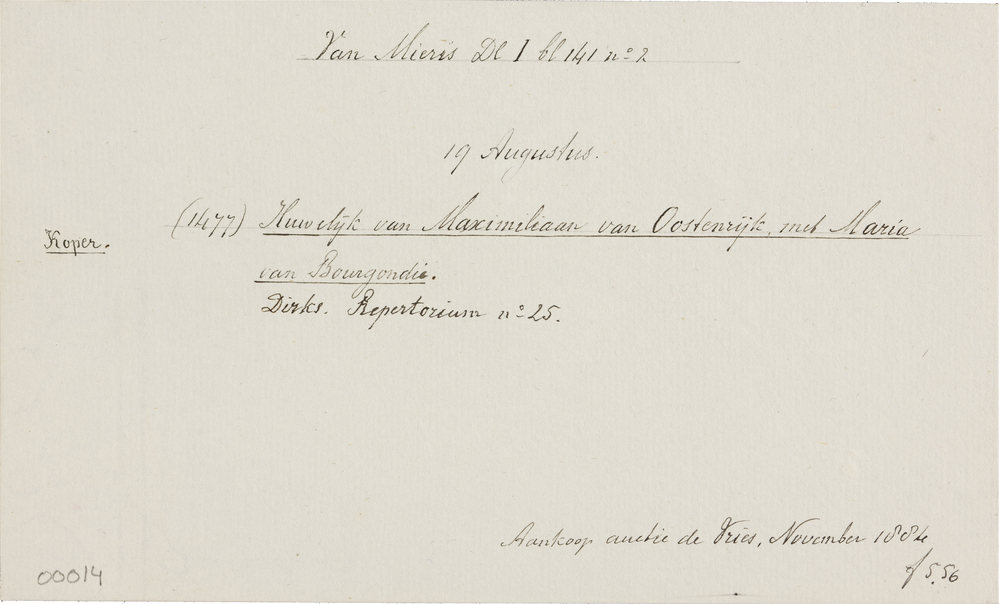 Van Mieris Dl I bl 141 no 2
19 Augustus.
(1477) Huwelijk van Maximiliaan van Oostenrijk, met Maria
Koper.
van Bourgondie.
Dirks. Repertorium no 25.
Aankoop auctie de Vries, November 1884
f 5.56
00014